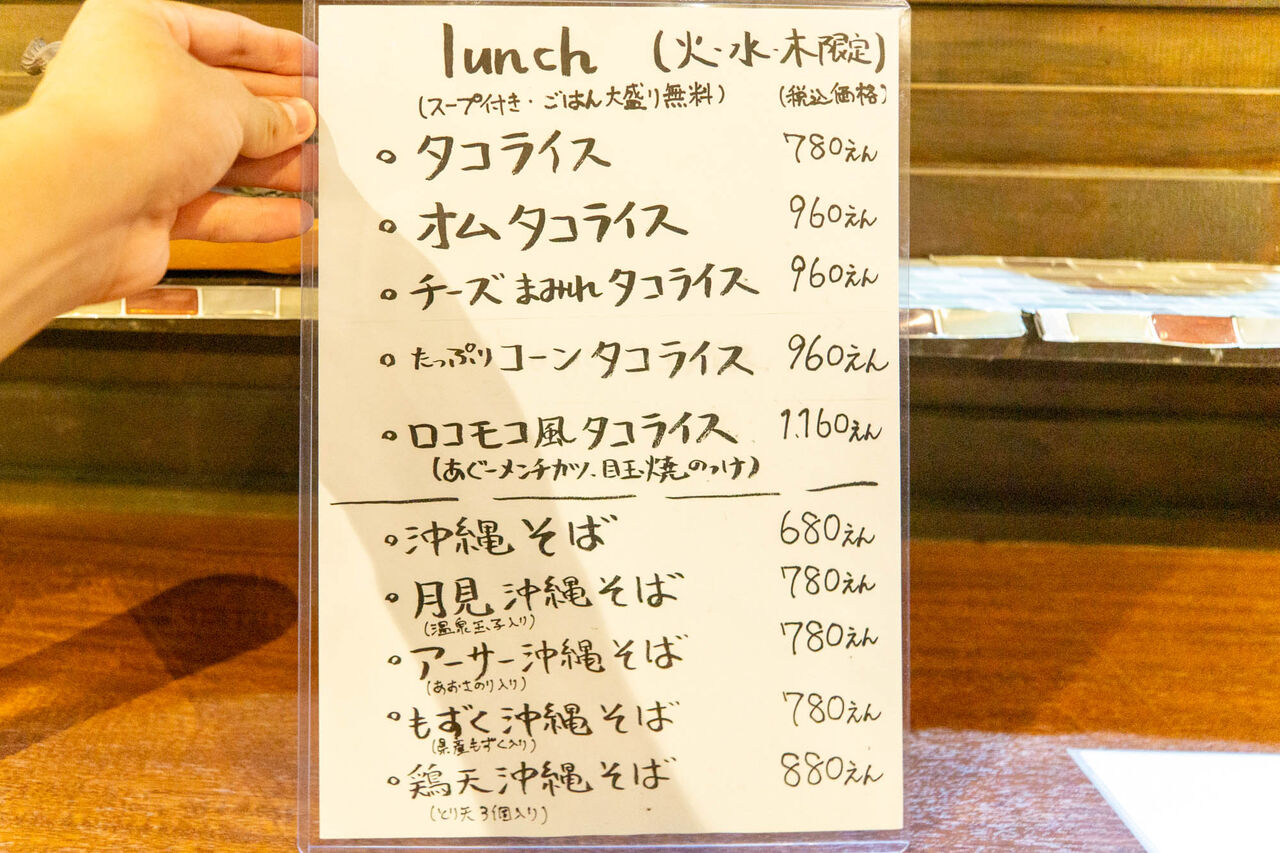 lunch (火・水・木限定)
(スープ付き・ごはん大盛り無料) (税込価格)
○ タコライス 780えん
○ オムタコライス 960えん
○ チーズまみれタコライス 960えん
○ たっぷりコーンタコライス 960えん
○ ロコモコ風タコライス 1.160えん
(あぐーメンチカツ、目玉焼のっけ)
○ 沖縄そば 680えん
○ 月見沖縄そば 780えん
(温泉玉子入り)
○ アーサー沖縄そば 780えん
(あおさのり入り)
○ もずく沖縄そば 780えん
(県産もずく入り)
○ 鶏天沖縄そば 880えん
(とり天3個入り)